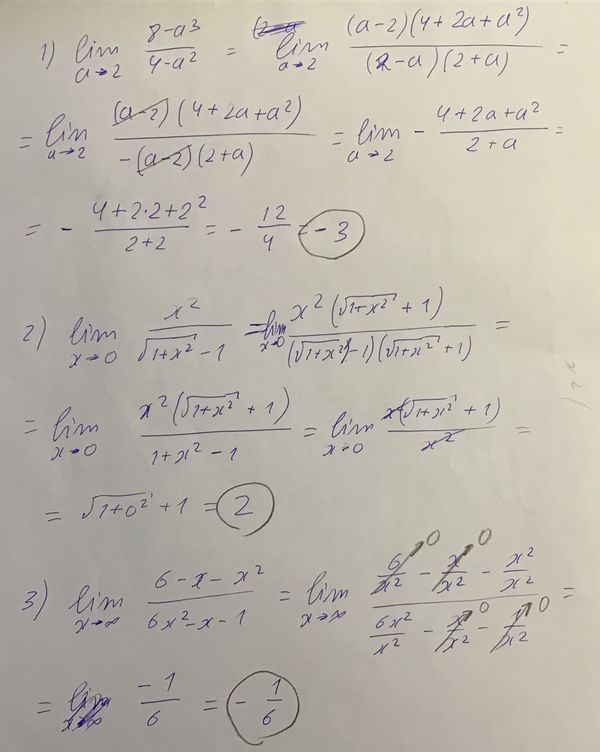 1) lim a→2 (8-a³)/(4-a²) = lim a→2 ((a-2)(4+2a+a²))/((2-a)(2+a)) =
= lim a→2 ((a-2)(4+2a+a²))/(-(a-2)(2+a)) = lim a→2 - (4+2a+a²)/(2+a) =
= - (4+2·2+2²)/(2+2) = - 12/4 = -3
2) lim x→0 x²/(√(1+x²) -1) = lim x→0 (x²(√(1+x²) +1))/((√(1+x²) -1)(√(1+x²) +1)) =
= lim x→0 (x²(√(1+x²) +1))/(1+x²-1) = lim x→0 (x²(√(1+x²) +1))/x² =
= √(1+0²) +1 = 2
3) lim x→∞ (6-x-x²)/(6x²-x-1) = lim x→∞ (6/x² - x/x² - x²/x²)/(6x²/x² - x/x² - 1/x²) =
= -1/6 = - 1/6